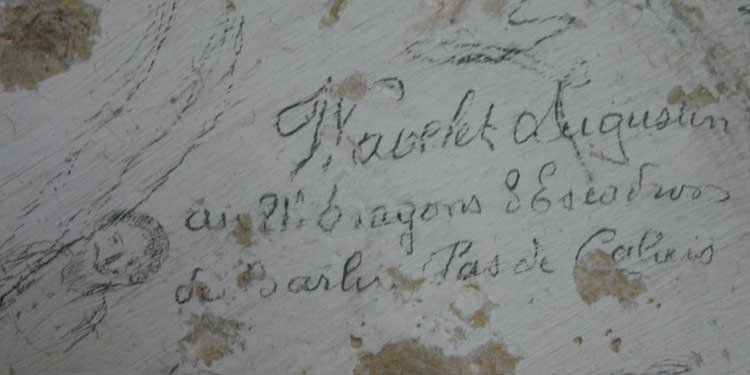 Wavelet Augustin
au 21e Dragons 3 Escadron
de Barlin Pas de Calais